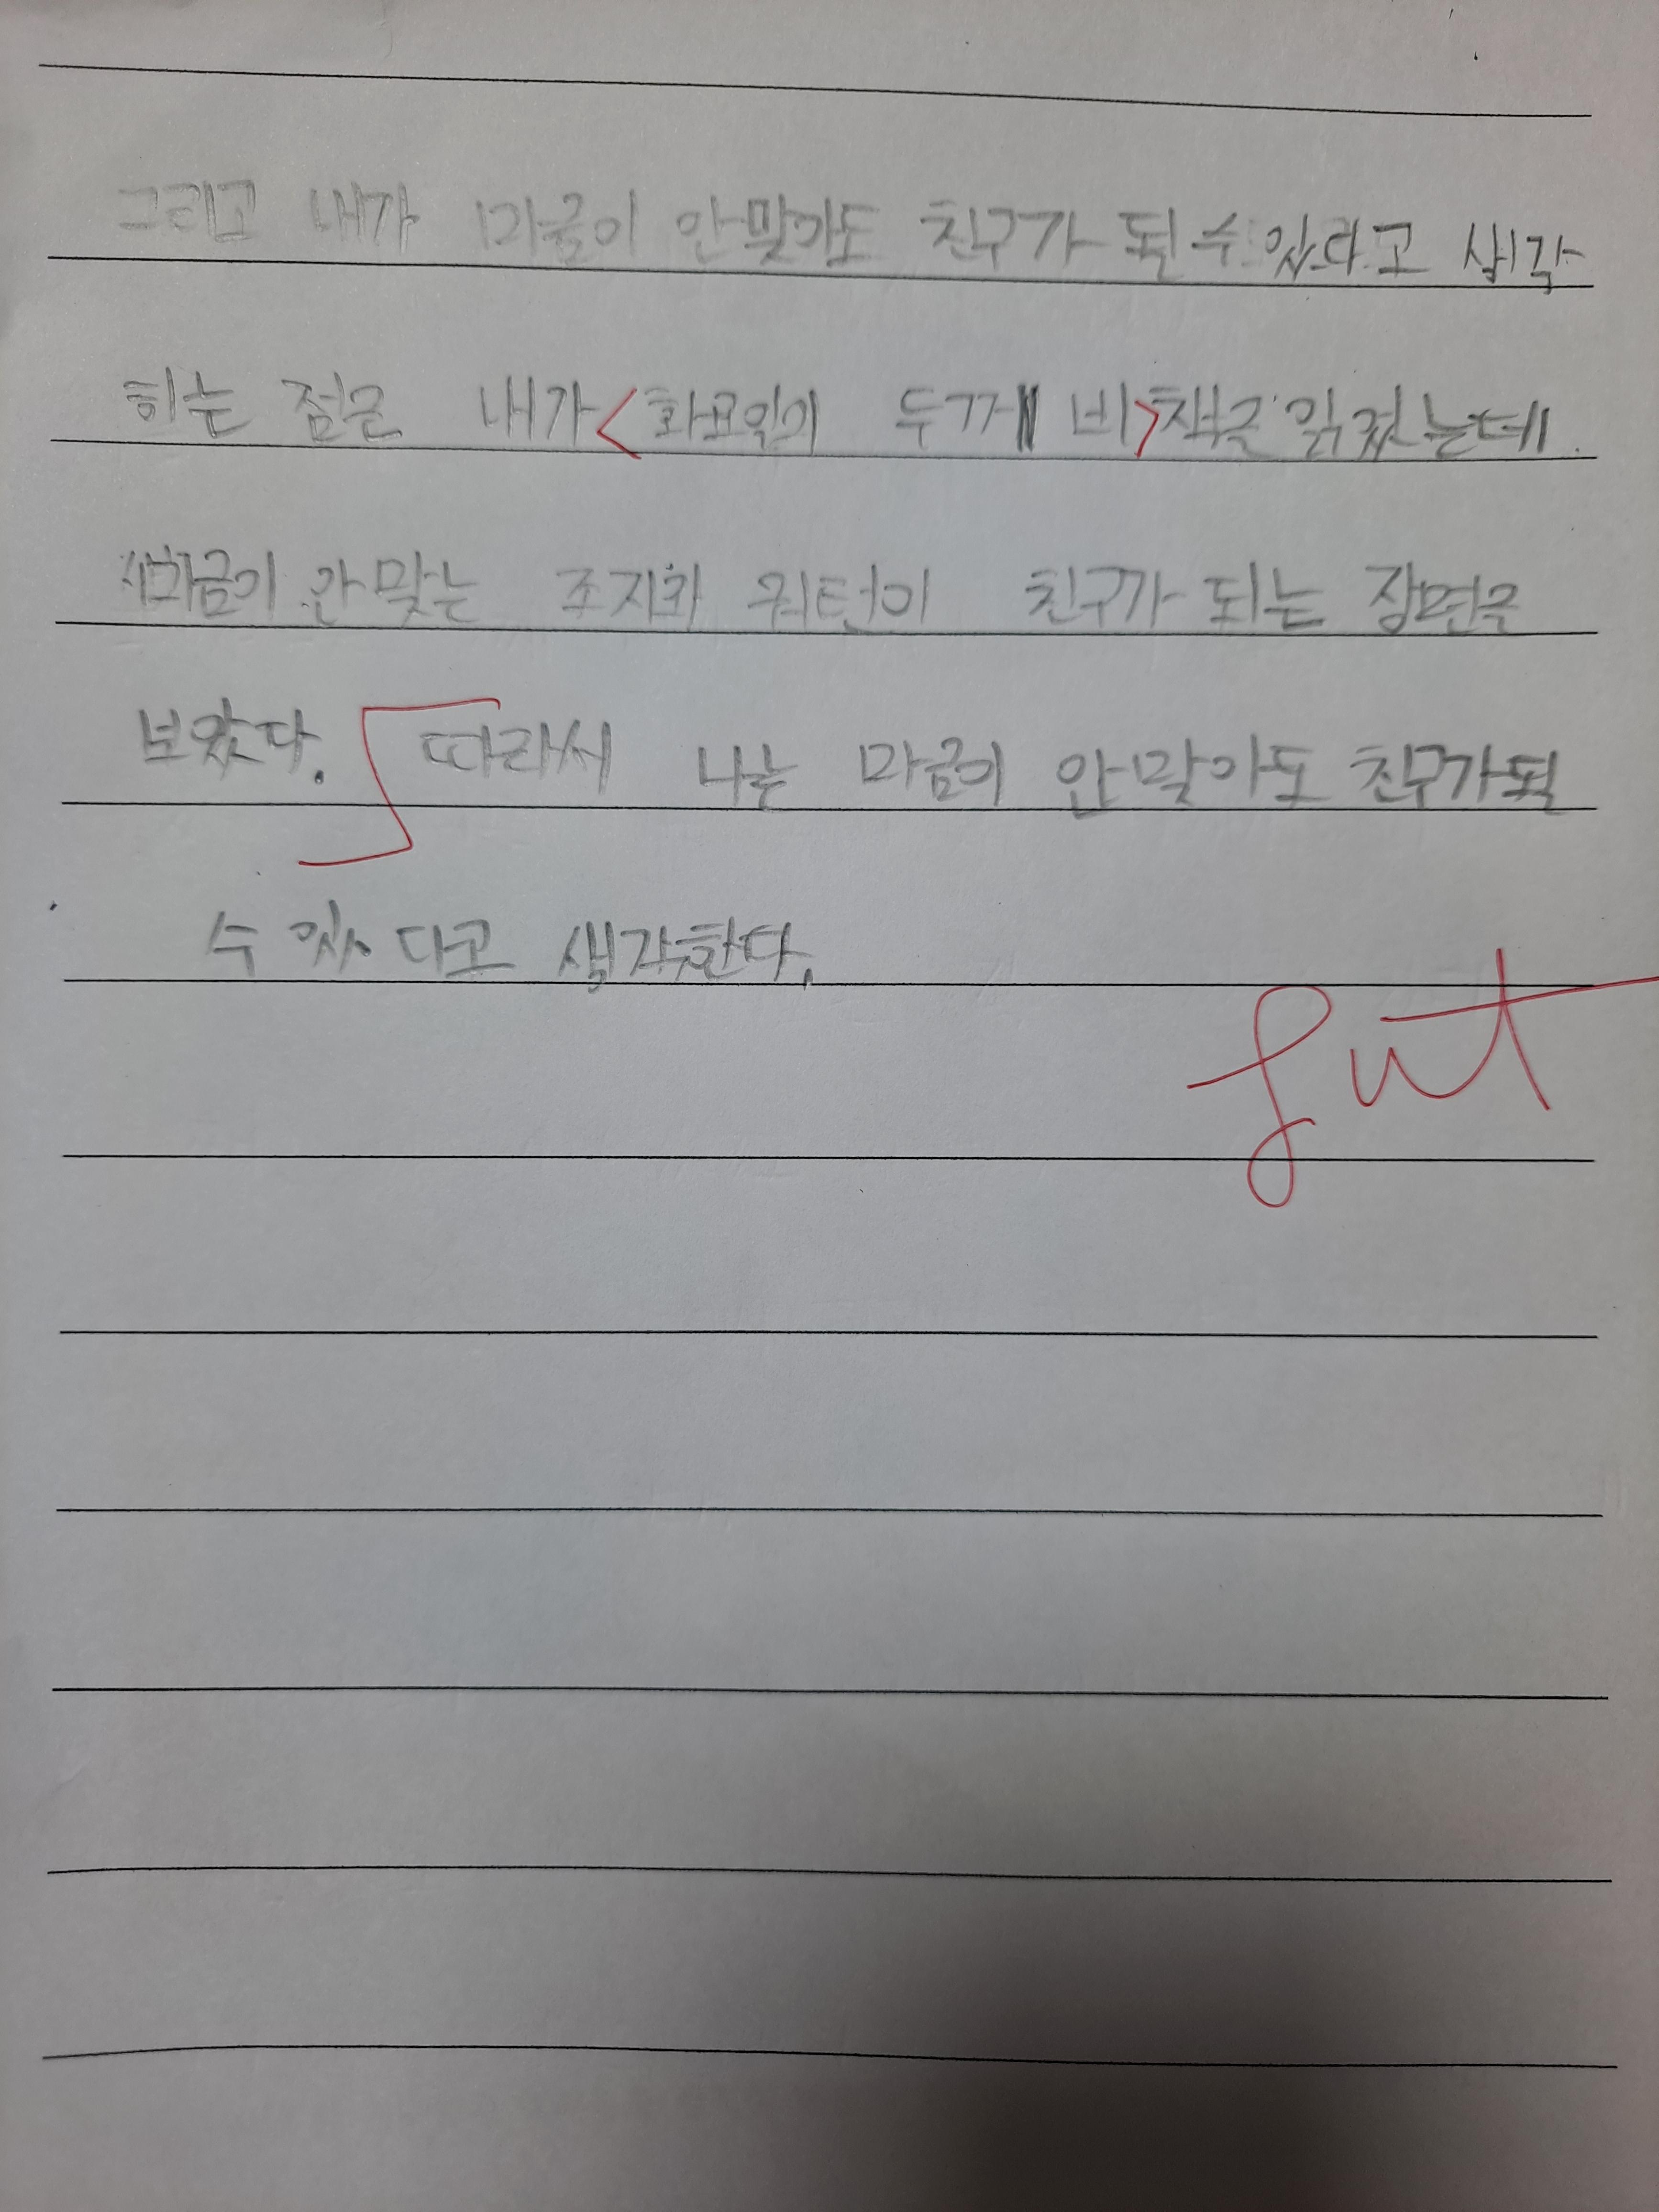 그리고 내가 마음이 안 맞아도 친구가 될 수 있다고 생각
하는 점은 내가 <화요일의 두꺼비> 책을 읽었는데
마음이 안 맞는 조지와 워턴이 친구가 되는 장면을
보았다. 따라서 나는 마음이 안 맞아도 친구가 될
수 있다고 생각한다.